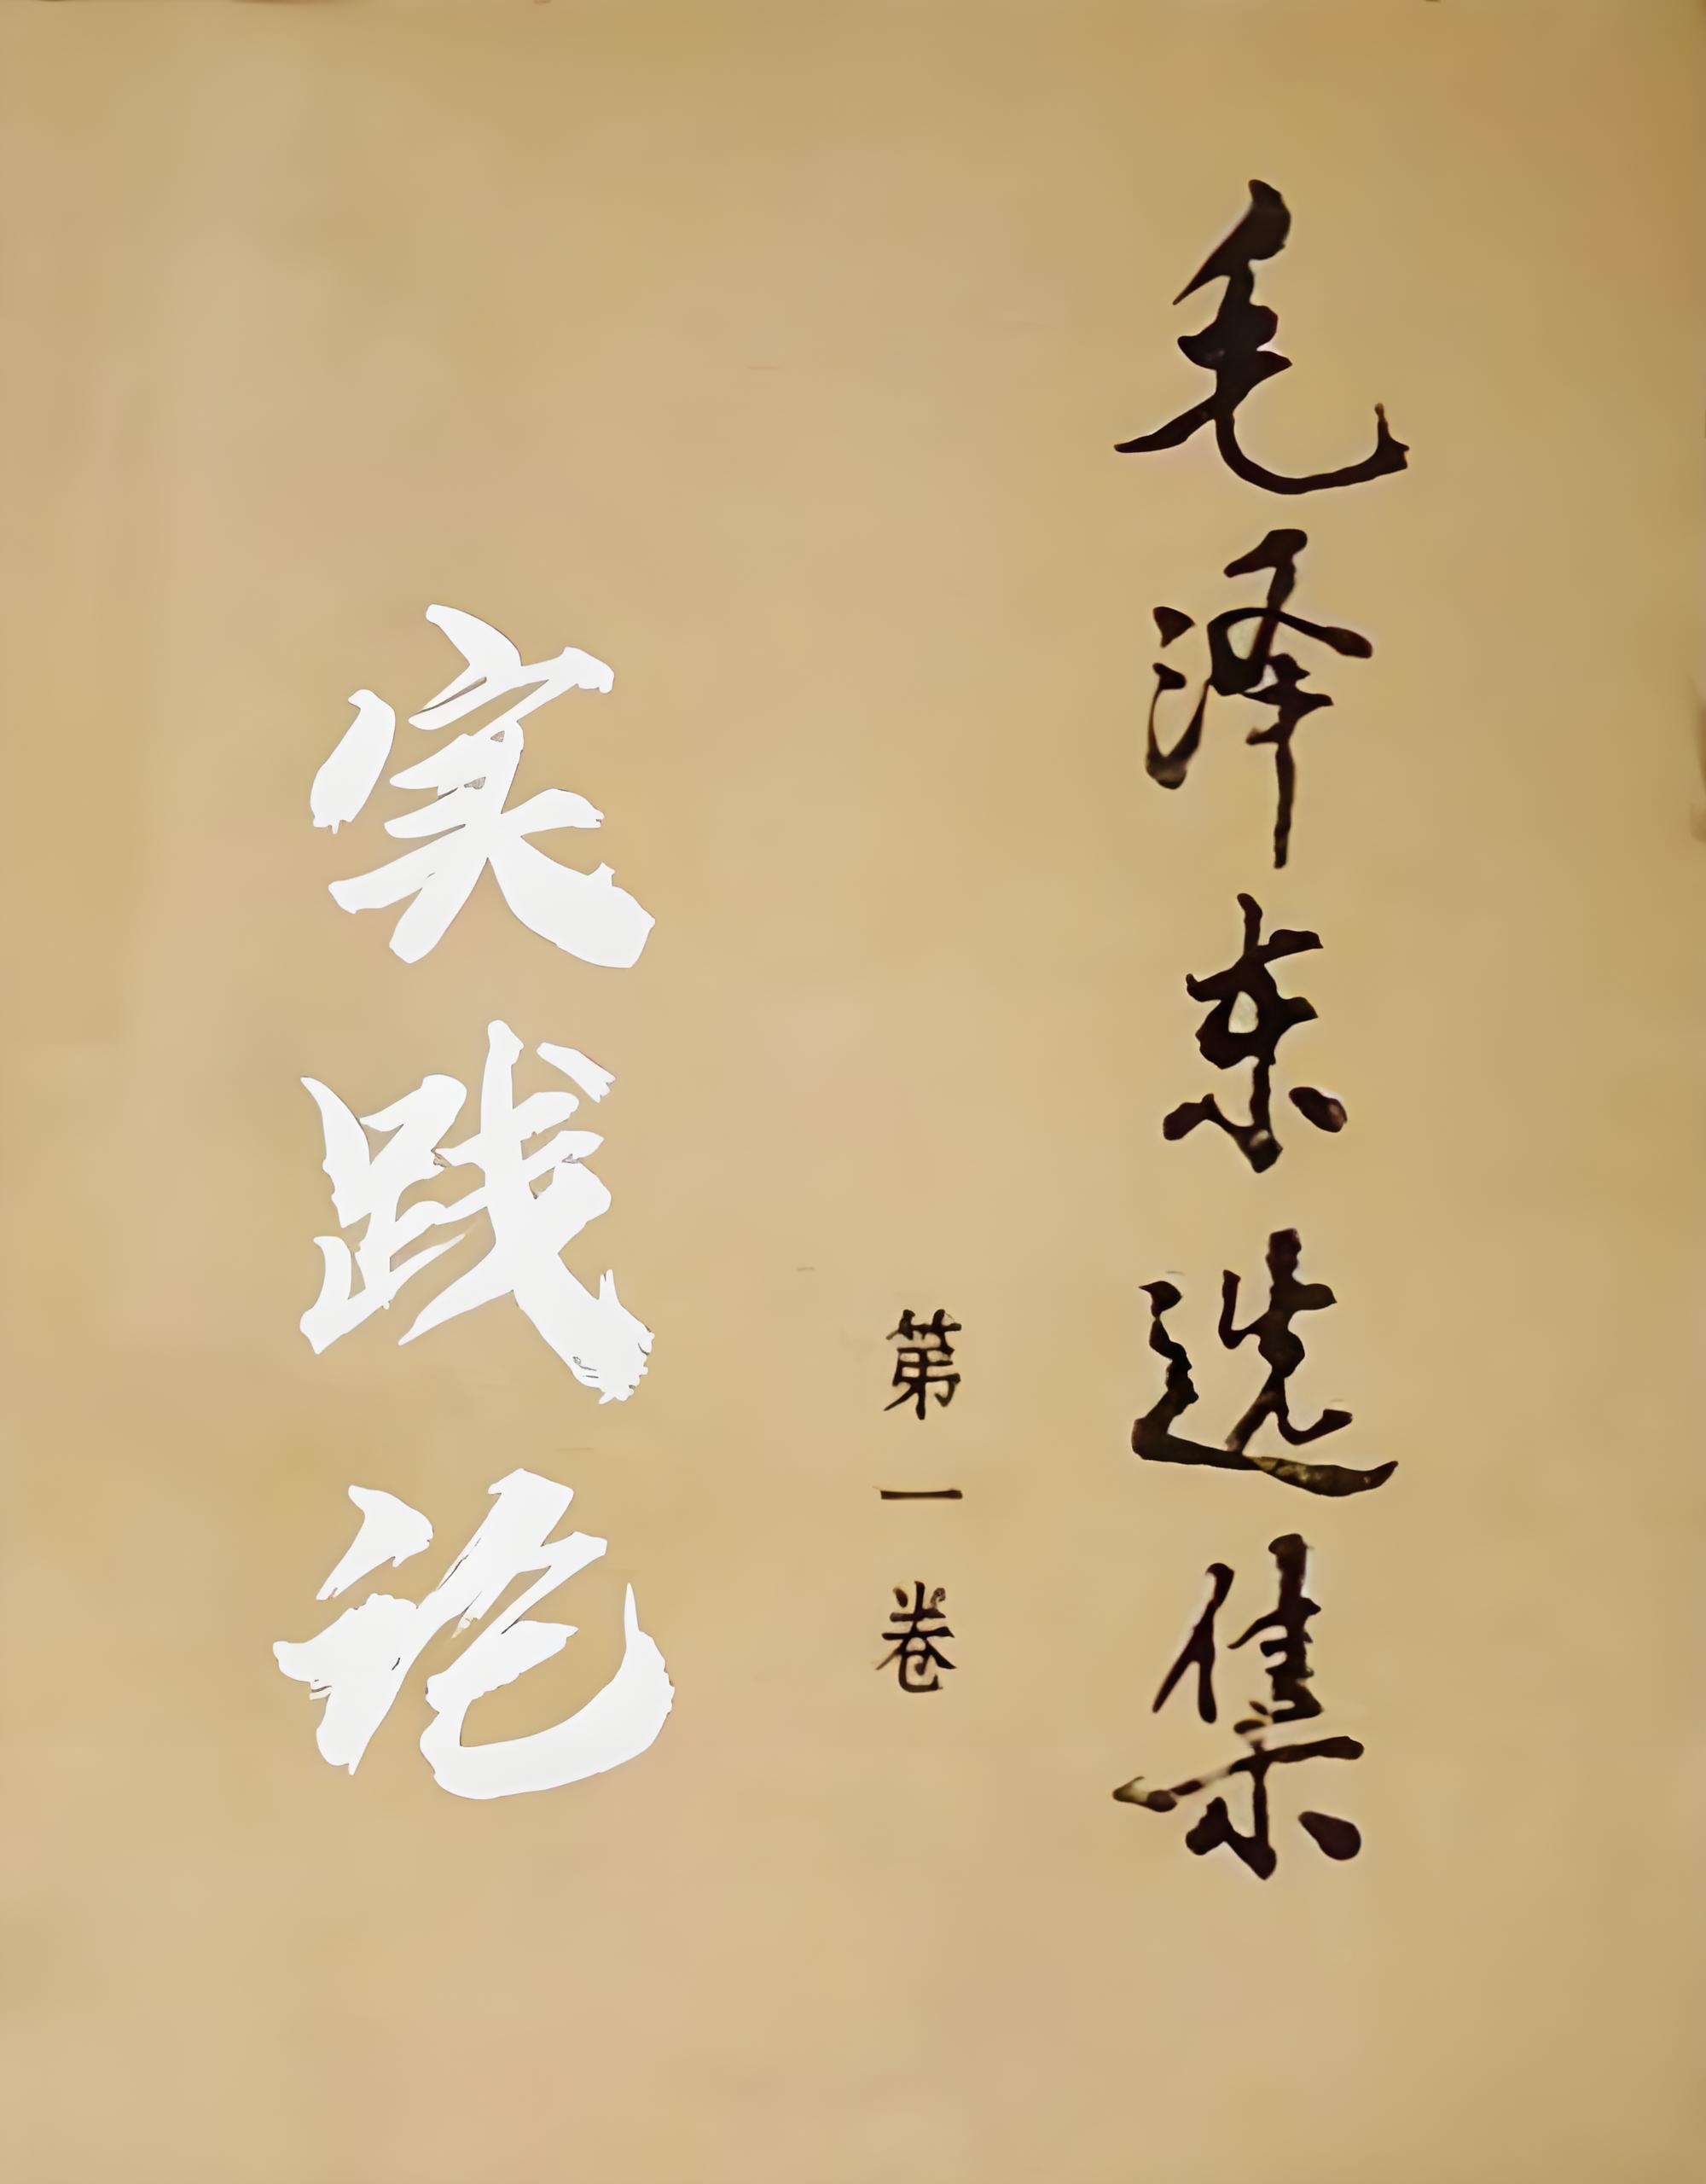 毛泽东选集
第一卷
实践论